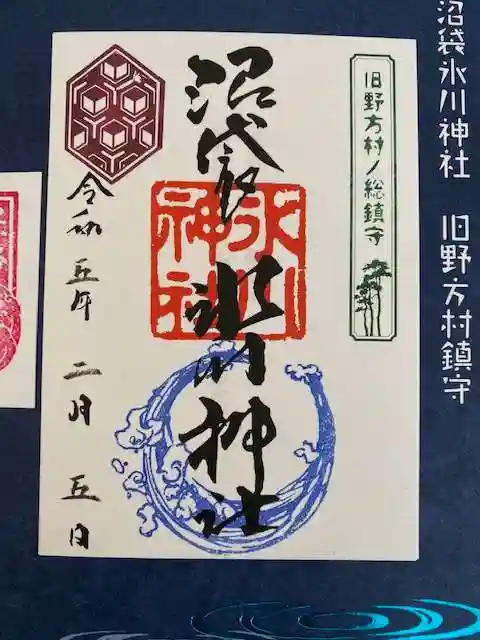 沼袋氷川神社 旧野方村鎮守
旧野方村ノ総鎮守
沼袋 氷川神社
氷川
神社
令和 五年 二月 五日